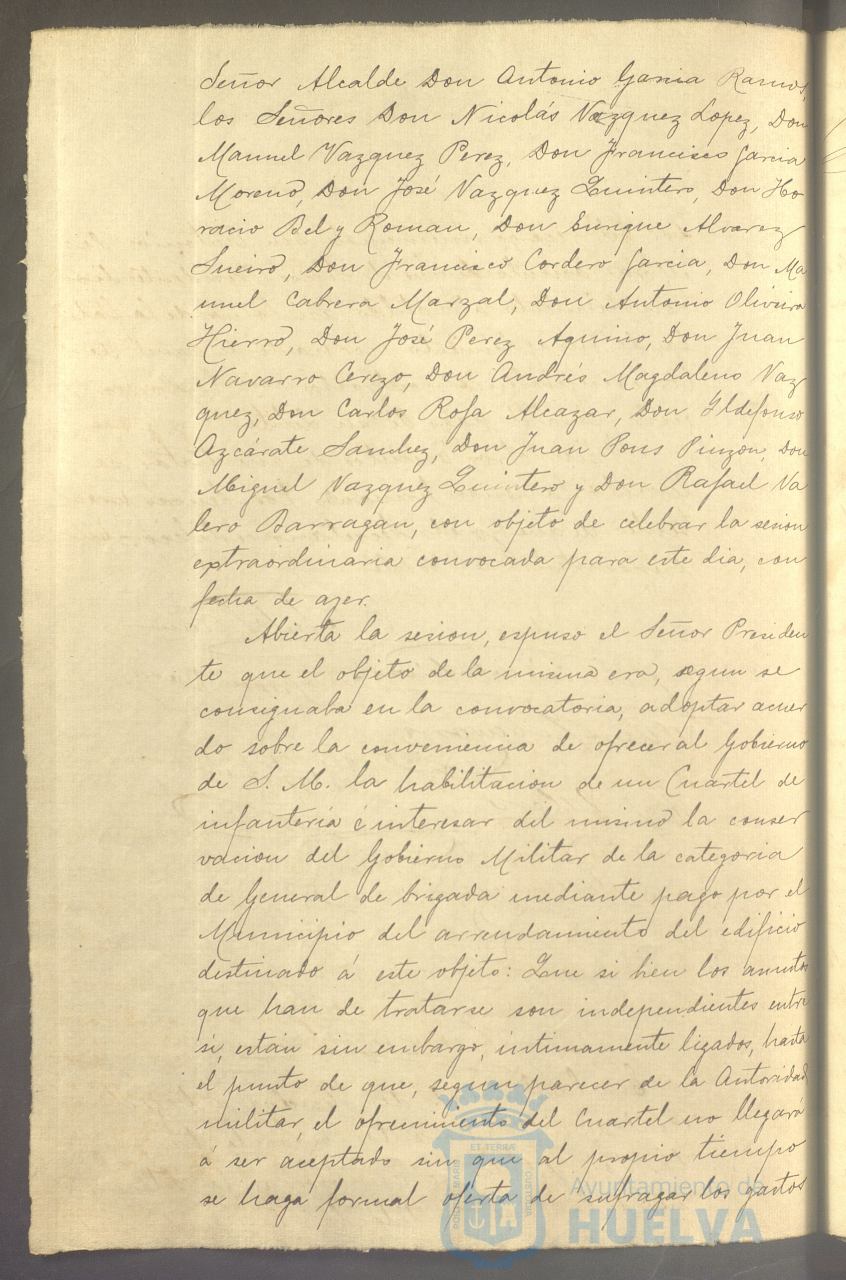 Señor Alcalde Don Antonio Garcia Ramos,
los Señores Don Nicolás Vazquez Lopez, Don
Manuel Vazquez Perez, Don Francisco Garcia
Moreno, Don José Vazquez Quintero, Don Ho
racio Bel y Roman, Don Enrique Alvarez
Sueiro, Don Francisco Cordero Garcia, Don Ma
nuel Cabrera Marzal, Don Antonio Oliveira
Hierro, Don José Perez Aquino, Don Juan
Navarro Cerezo, Don Andrés Magdaleno Vaz
quez, Don Carlos Rofa Alcazar, Don Yldefonso
Azcárate Sanchez, Don Juan Pons Pinzon, Don
Miguel Vazquez Quintero y Don Rafael Va
lero Barragan, con objeto de celebrar la sesion
extraordinaria convocada para este dia, con
fecha de ayer.
Abierta la sesion, espuso el Señor Presiden
te que el objeto de la misma era, segun se
consignaba en la convocatoria, adoptar acuer
do sobre la conveniencia de ofrecer al Gobierno
de S. M. la habilitacion de un Cuartel de
infantería é interesar del mismo la conser
vacion del Gobierno Militar de la categoria
de General de brigada mediante pago por el
Municipio del arrendamiento del edificio
destinado á este objeto: Que si bien los asuntos
que han de tratarse son independientes entre
si, están sin embargo, intimamente ligados, hasta
el punto de que, segun parecer de la Autoridad
militar, el ofrecimiento del Cuartel no llegará
á ser aceptado sin que al propio tiempo
se haga formal oferta de sufragar los gastos
Ayuntamiento de
HUELVA